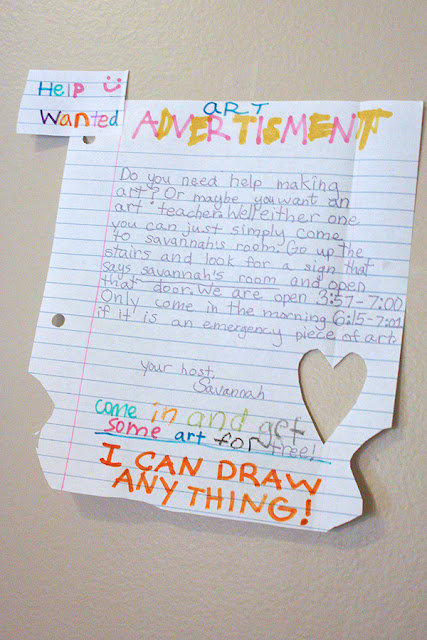 Help
Wanted
ART
ADVERTISMENT
Do you need help making
art? Or maybe you want an
art teacher. Well either one
you can just simply come
to savannah's room. Go up the
stairs and look for a sign that
says savannah's room and open
that door. We are open 3:57-7:00
Only come in the morning 6:15-7:01
if it is an emergency piece of art.
your host,
Savannah
come in and get
some art for free!
I CAN DRAW
ANY THING!